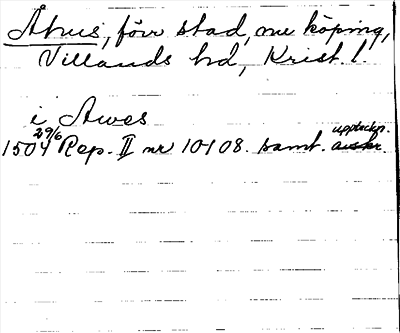 Åhus, förr stad, nu köping,
Villands hd, Krist. l.
i Awes
1504 29/6 Rep. II nr 10108. samt. uppteckn.